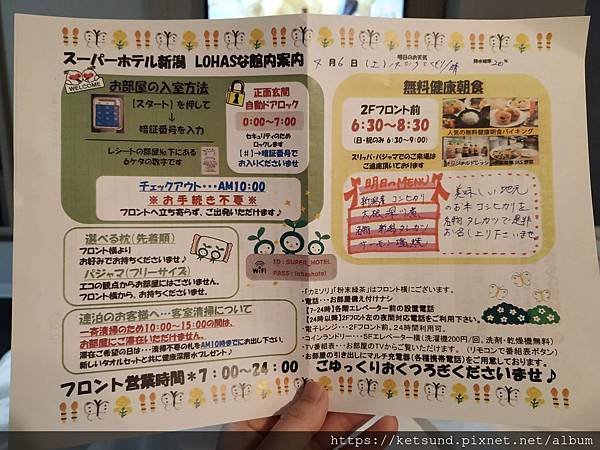 スーパーホテル新潟 LOHASな館内案内
WELCOME
お部屋の入室方法
【スタート】を押して
→暗証番号を入力
レシートの部屋№下にある
6ケタの数字です
正面玄関
自動ドアロック
0:00~7:00
セキュリティのため
ロックします
【#】→暗証番号で
お入りくださいませ
チェックアウト・・・AM10:00
※お手続き不要※
フロントへ立ち寄らず、ご出発いただけます♪
選べる枕(先着順)
フロント横より
お好みでお持ちくださいませ♪
パジャマ(フリーサイズ)
エコの観点からお部屋にはございません。
フロント横から、お持ちくださいませ。
WiFi
ID:SUPER_HOTEL
PASS:lohashotel
連泊のお客様へ・・・客室清掃について
一斉清掃のため10:00~15:00の間は、
お部屋にご滞在いただけません。
滞在ご希望の日は・・・清掃不要の札をAM10時までにお出し下さい。
新しいタオルセットと共に健康深層水プレゼント♪
フロント営業時間*7:00~24:00
4月6日(土)
明日のお天気
晴
降水確率 20%
無料健康朝食
2Fフロント前
6:30~8:30
(日・祝のみ 6:30~9:00)
スリッパ・パジャマでのご来場は
ご遠慮頂いております
人気の無料健康朝食バイキング
明日のMENU
新潟産コシヒカリ
美味しい地元
のお米コシヒカリと
・「カミソリ」「粉末緑茶」はフロント横にございます。
・電話・・・お部屋備え付けナシ
【7-24時】各階エレベーター前の設置電話
【24時以降】2Fフロント左の夜間対応電話をご利用下さい。
・電子レンジ・・・2Fフロント前。24時間利用可。
・コインランドリー・・・5Fエレベーター横(洗濯機200円/回。洗剤・乾燥機無料)
・TV番組表・・・お部屋のTVからご覧いただけます。(リモコンで番組表ボタン)
・お部屋の引き出しにマルチ充電器(各種携帯電話)をご用意しております。
ごゆっくりおくつろぎくださいませ♪
https://ketsund.pixnet.net/album